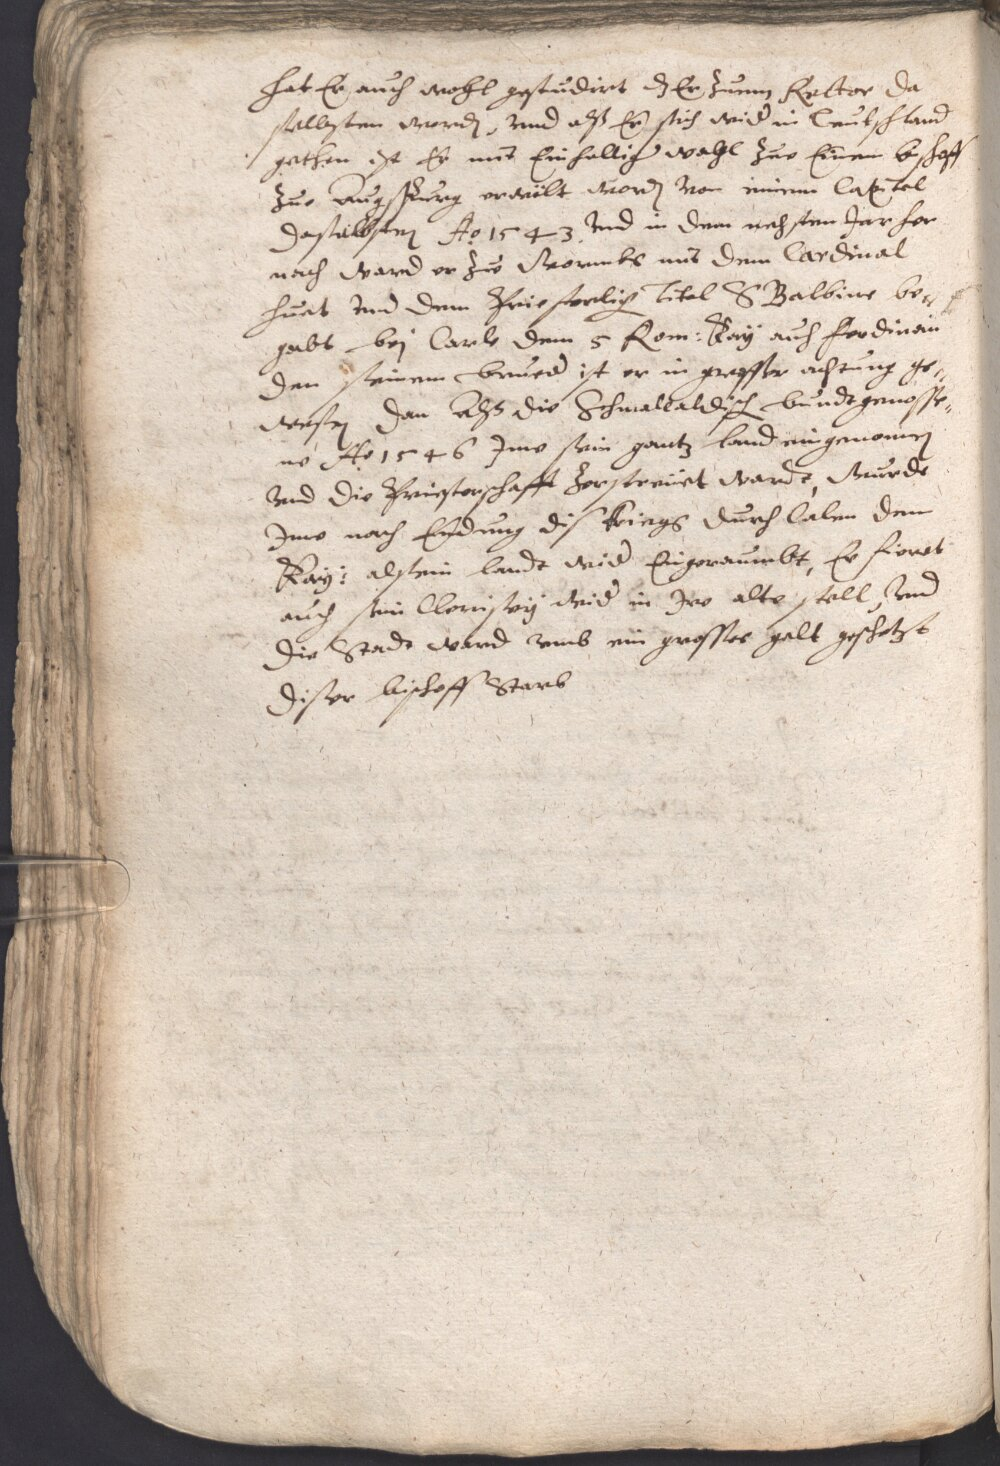 hat Er auch wohl gestudirt dz Er Zumm Rector da
selbsten word, vnd alß Er sich wid in Teutschland
gethon ist Er mit Einhellig wahl Zue Einem bischoff
Zue Augspurg erwölt word von einem Capitel
daselbsten Ao 1543 vnd in dem nehsten Jar her
nach ward er Zue Wormbs mit dem Cardinal
huet vnd dem Priesterlich Titel S Balbine be,,
gabt bej Carle dem 5 Rom: Kay auch Ferdinan
den seinem brued ist er in grosser achtung ge,,
wesen dan Alß die Schmalcaldisch bundtgenosse,,
ne Ao 1546 Jme sein gantz land eingenomen
vnd die Priesterschafft Zerstreuet warde, Wurde
Jme nach Endung dis Kriegs durch Calen dem
Kay: all sein lande wid Eingeraumbt, Er fieret
auch sein Clerisey wid in Jre alte stell, vnd
die Stadt ward vmb ein grosses gelt geschetzt
diser bischoff Starb